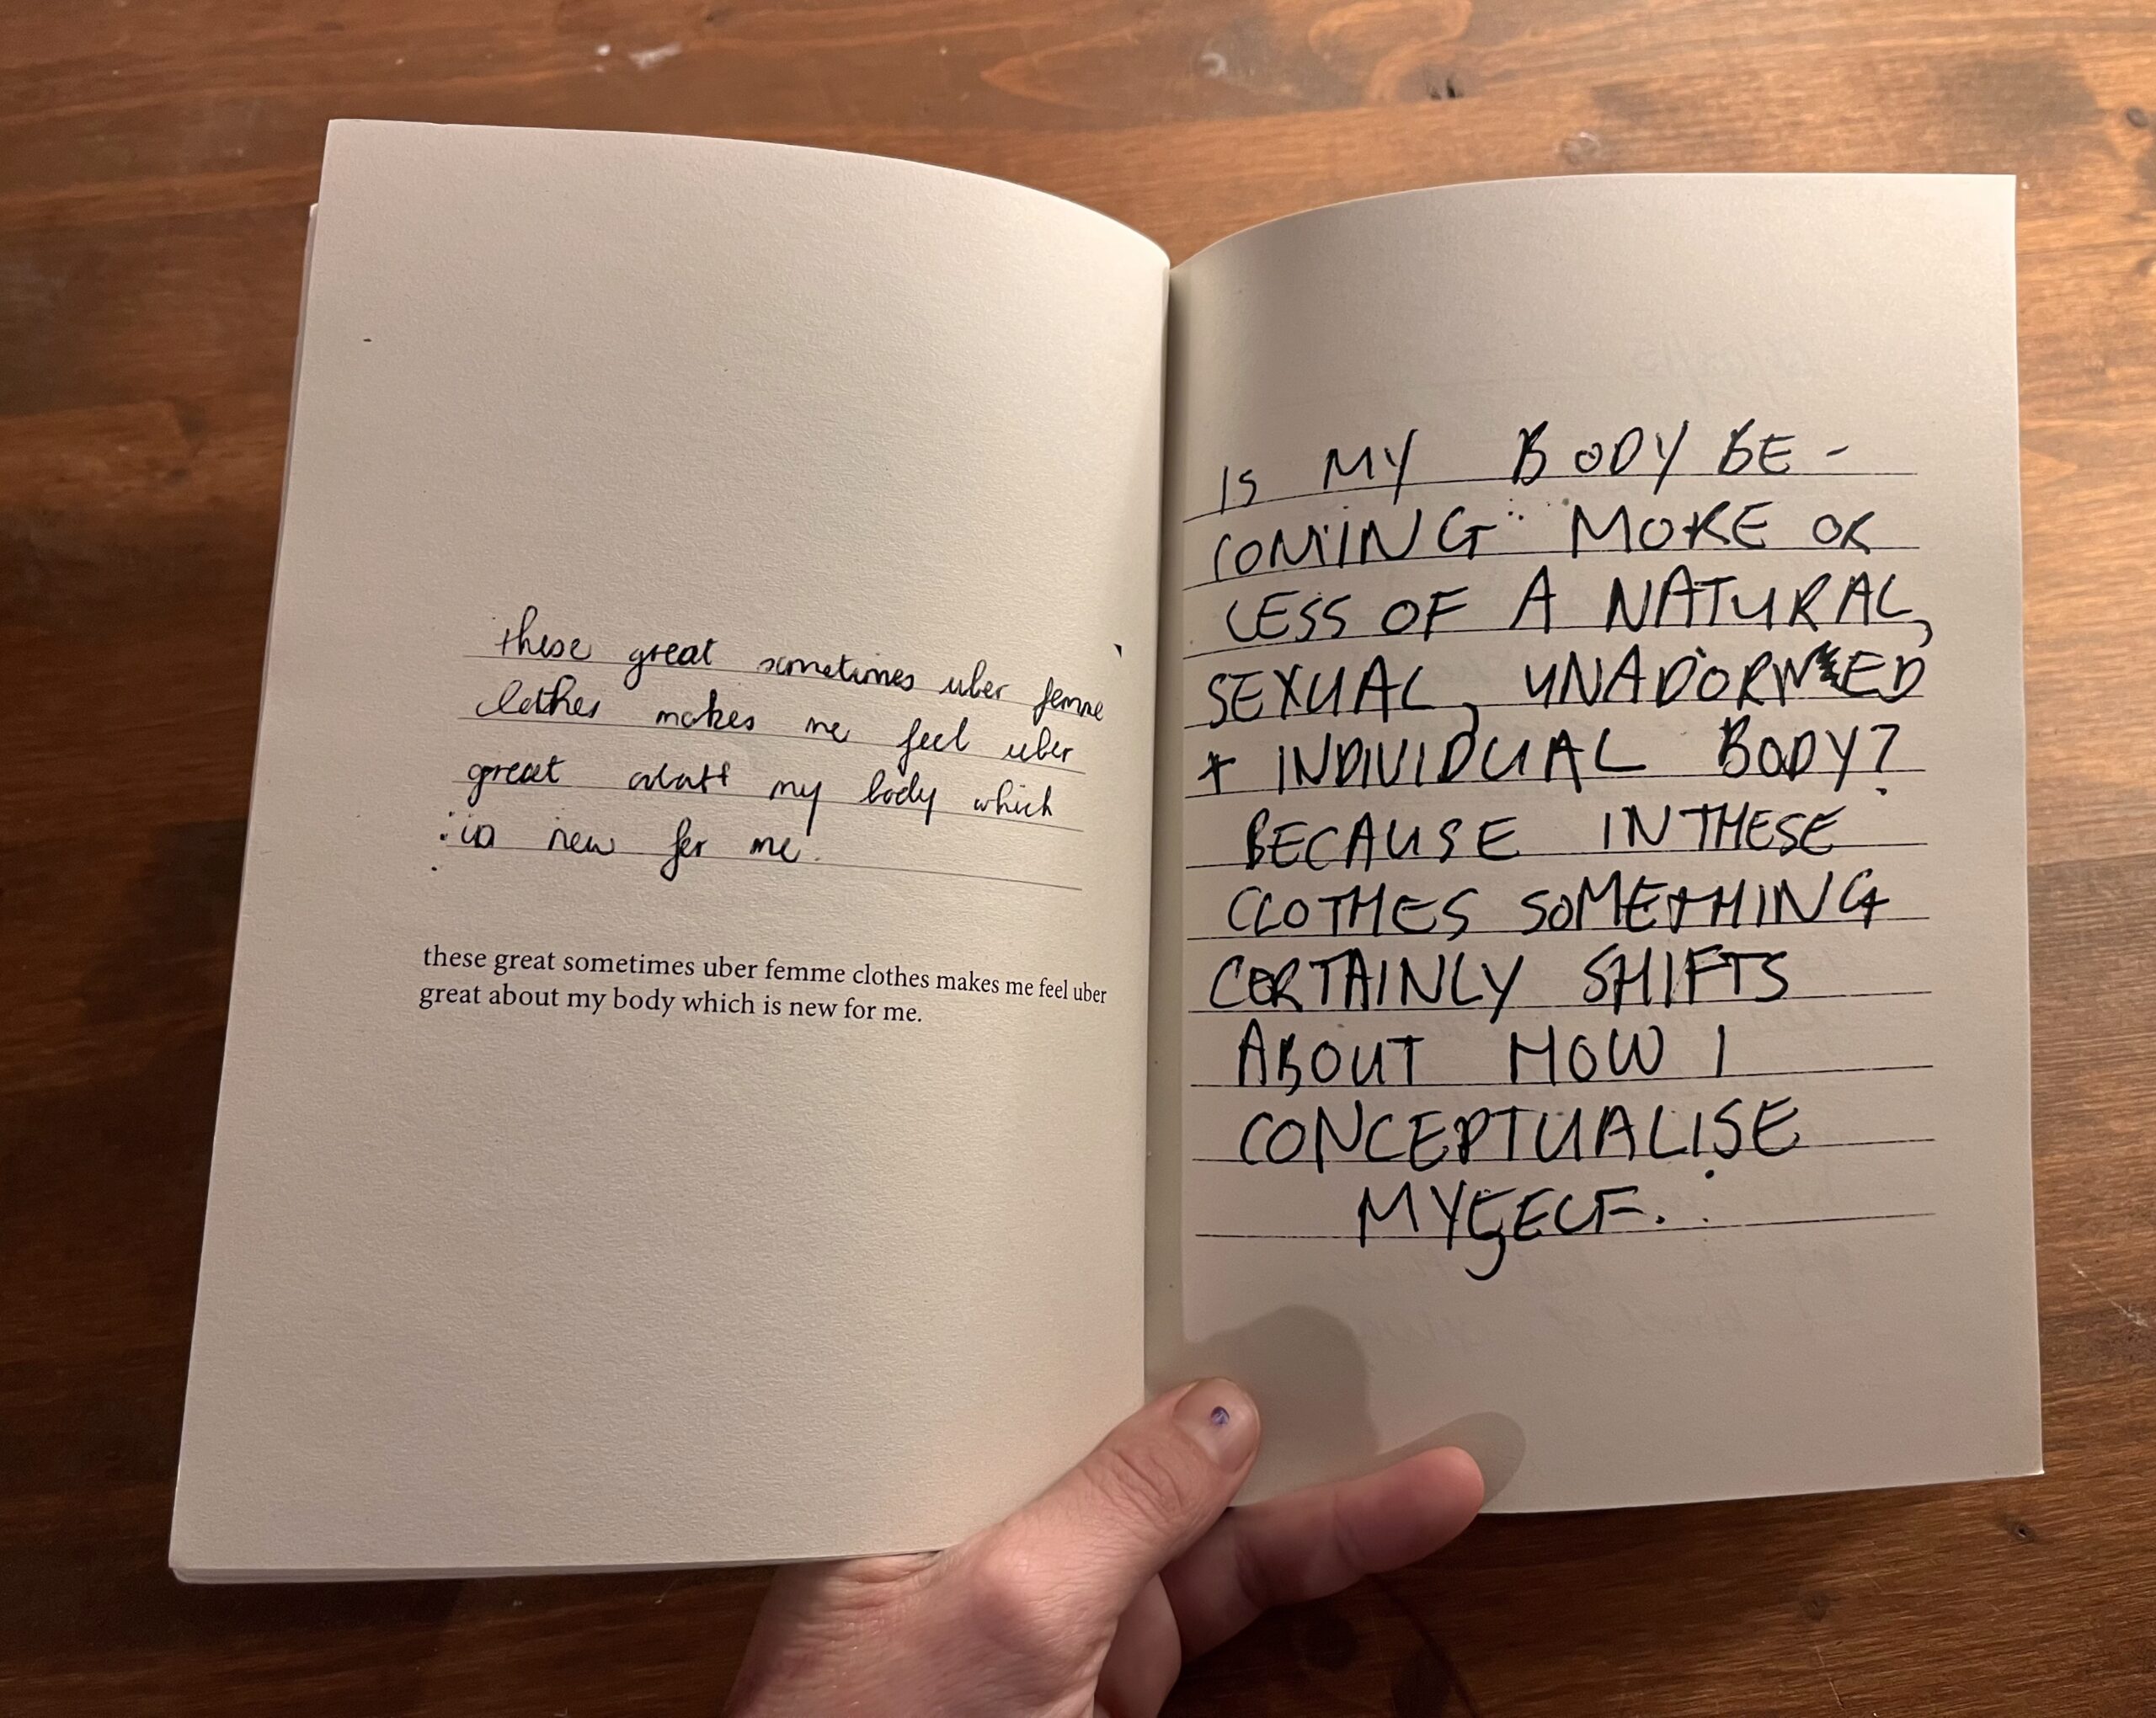 these great sometimes uber femme
clothes makes me feel uber
great about my body which
is new for me.
these great sometimes uber femme clothes makes me feel uber
great about my body which is new for me.
IS MY BODY BE-
COMING MORE OR
LESS OF A NATURAL,
SEXUAL, UNADORNED
+ INDIVIDUAL BODY?
BECAUSE IN THESE
CLOTHES SOMETHING
CERTAINLY SHIFTS
ABOUT HOW I
CONCEPTUALISE
MYSELF.